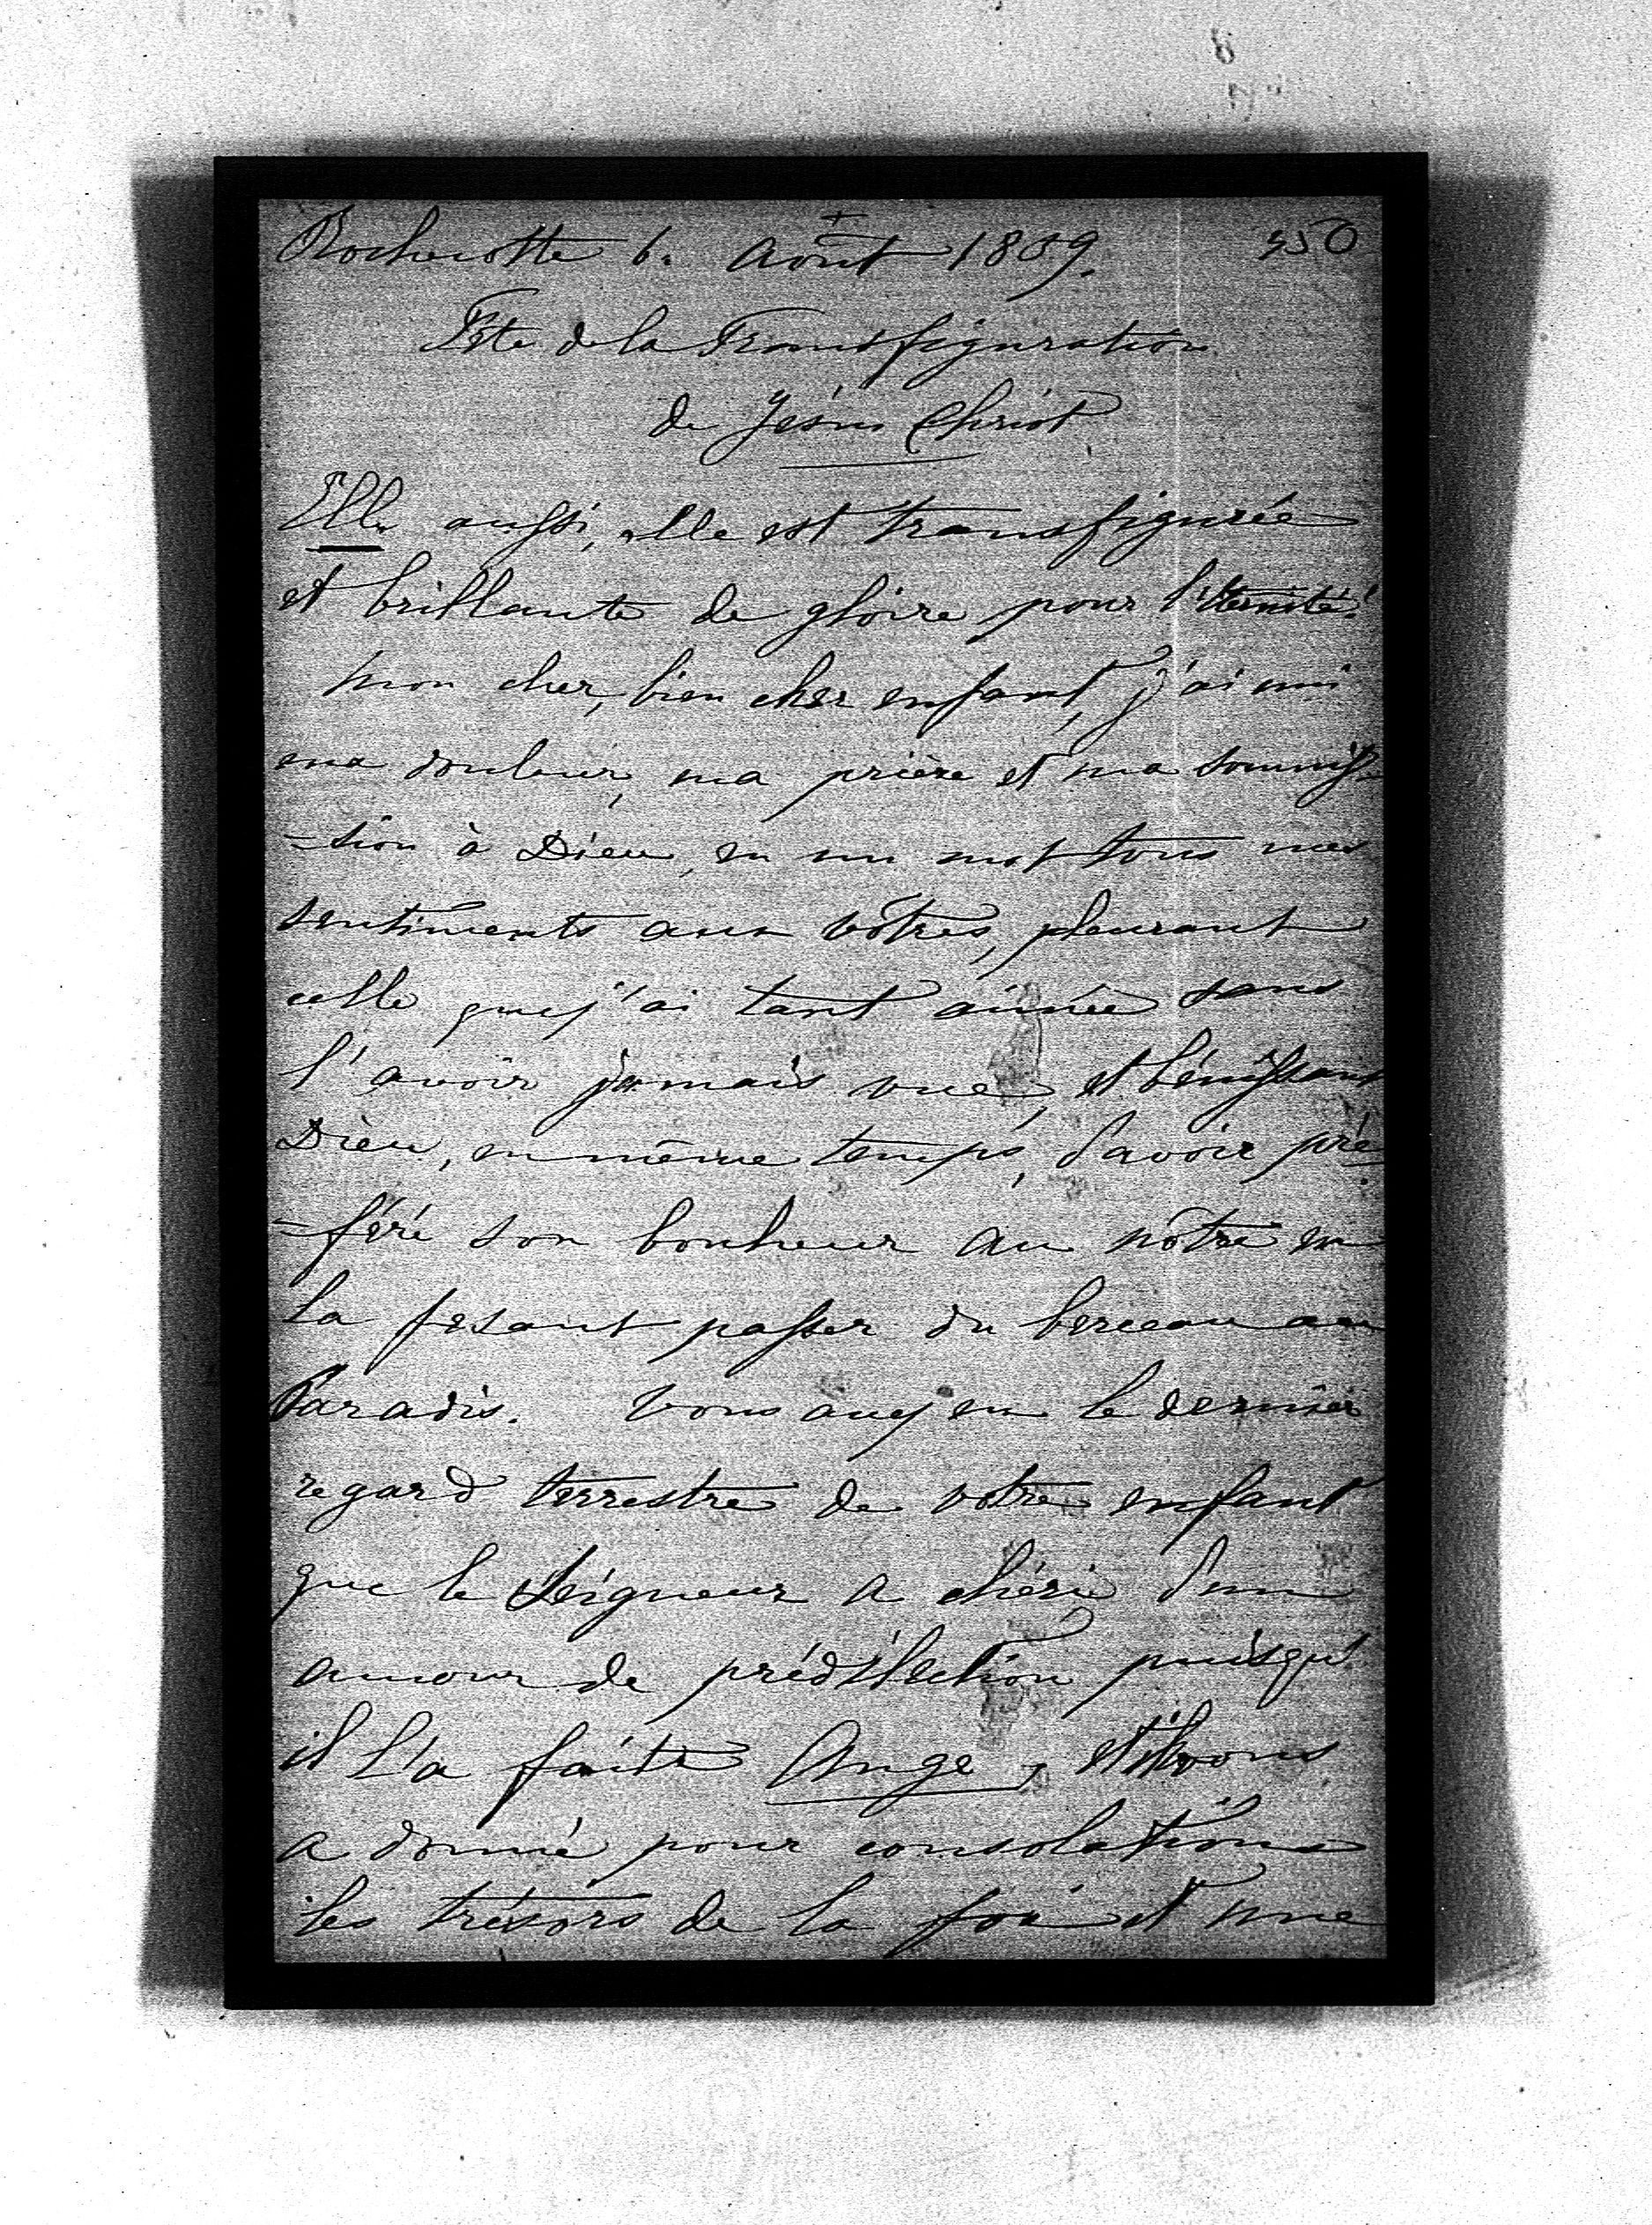 +
Rochecotte 6. Août 1859. 350
Fête de la Transfiguration
de Jésus Christ
Elle aussi, elle est transfigurée
et brillante de gloire pour l'éternité!
Mon cher, bien cher enfant, j'ai uni
ma douleur, ma prière et ma soumis-
-sion à Dieu, en un mot tous mes
sentiments aux vôtres, pleurant
celle que j'ai tant aimée sans
l'avoir jamais vue, et bénissant
Dieu, en même temps, d'avoir pré-
-féré son bonheur au nôtre en
la fesant passer du berceau au
Paradis. Vous avez eu le dernier
regard terrestre de votre enfant
que le Seigneur a chérie d'un
amour de prédilection puisqu'
il l'a faite Ange, et il vous
a donné pour consolations
les trésors de la foi et une